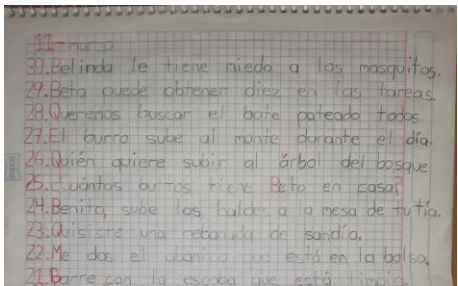 11-marzo
30.Belinda le tiene miedo a los mosquitos.
29.Beto puede obtener diez en las tareas
28.Queremos buscar el bote pateado todos.
27.El burro sube al monte durante el día.
26.Quién quiere subir al árbol del bosque
25.Cuántos bultos tiene Beto en casa?
24.Benito, sube los baldes a la mesa de tu tía.
23.Quisiste una rebanada de sandía.
22.Me das el abanico que está en la bolsa.
21.Barre con la escoba que está limpia.